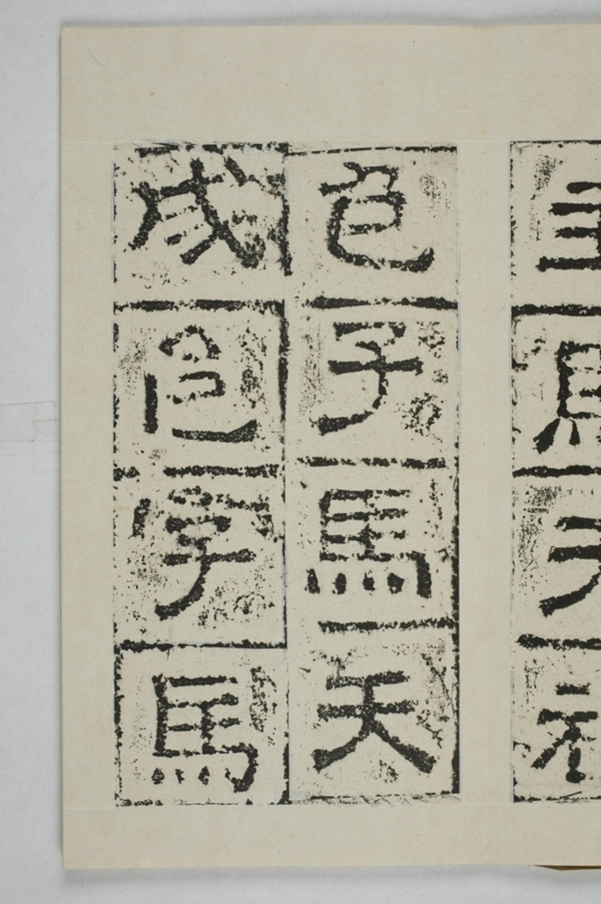 邑子馬天
成邑子馬